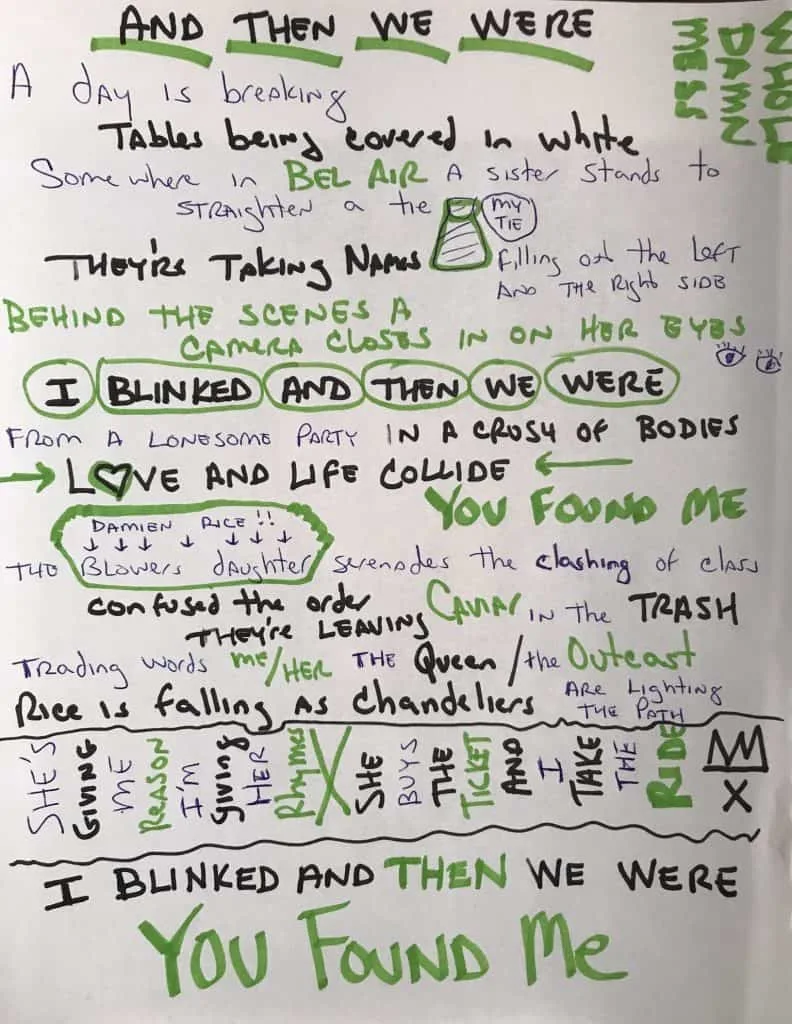 AND THEN WE WERE
WHOLE
DAMN
MESS
A DAY IS breaking
TABLES being covered in white
Somewhere in BEL AIR A sister stands to
STRAIGHTEN a tie
MY
TIE
THEY'RE TAKING NAMES
filling out the left
AND THE Right SIDE
BEHIND THE SCENES A
CAMERA CLOSES IN ON HER EYES
I BLINKED AND THEN WE WERE
FROM A LONESOME PARTY IN A CRUSH OF BODIES
LOVE AND LIFE COLLIDE
YOU FOUND ME
DAMIEN RICE!!
THE BLOWERS DAUGHTER serenades the clashing of class
confused the order Caviar IN the TRASH
THEY'RE LEAVING
Trading words me/HER THE Queen/the Outcast
Rice is falling as chandeliers ARE Lighting
THE PATH
SHE'S
GIVING
ME
REASON
I'M
giving
HER
Rhymes
X
SHE
BUYS
THE
TICKET
AND
I
TAKE
THE
RIDE
X
I BLINKED AND THEN WE WERE
YOU FOUND Me